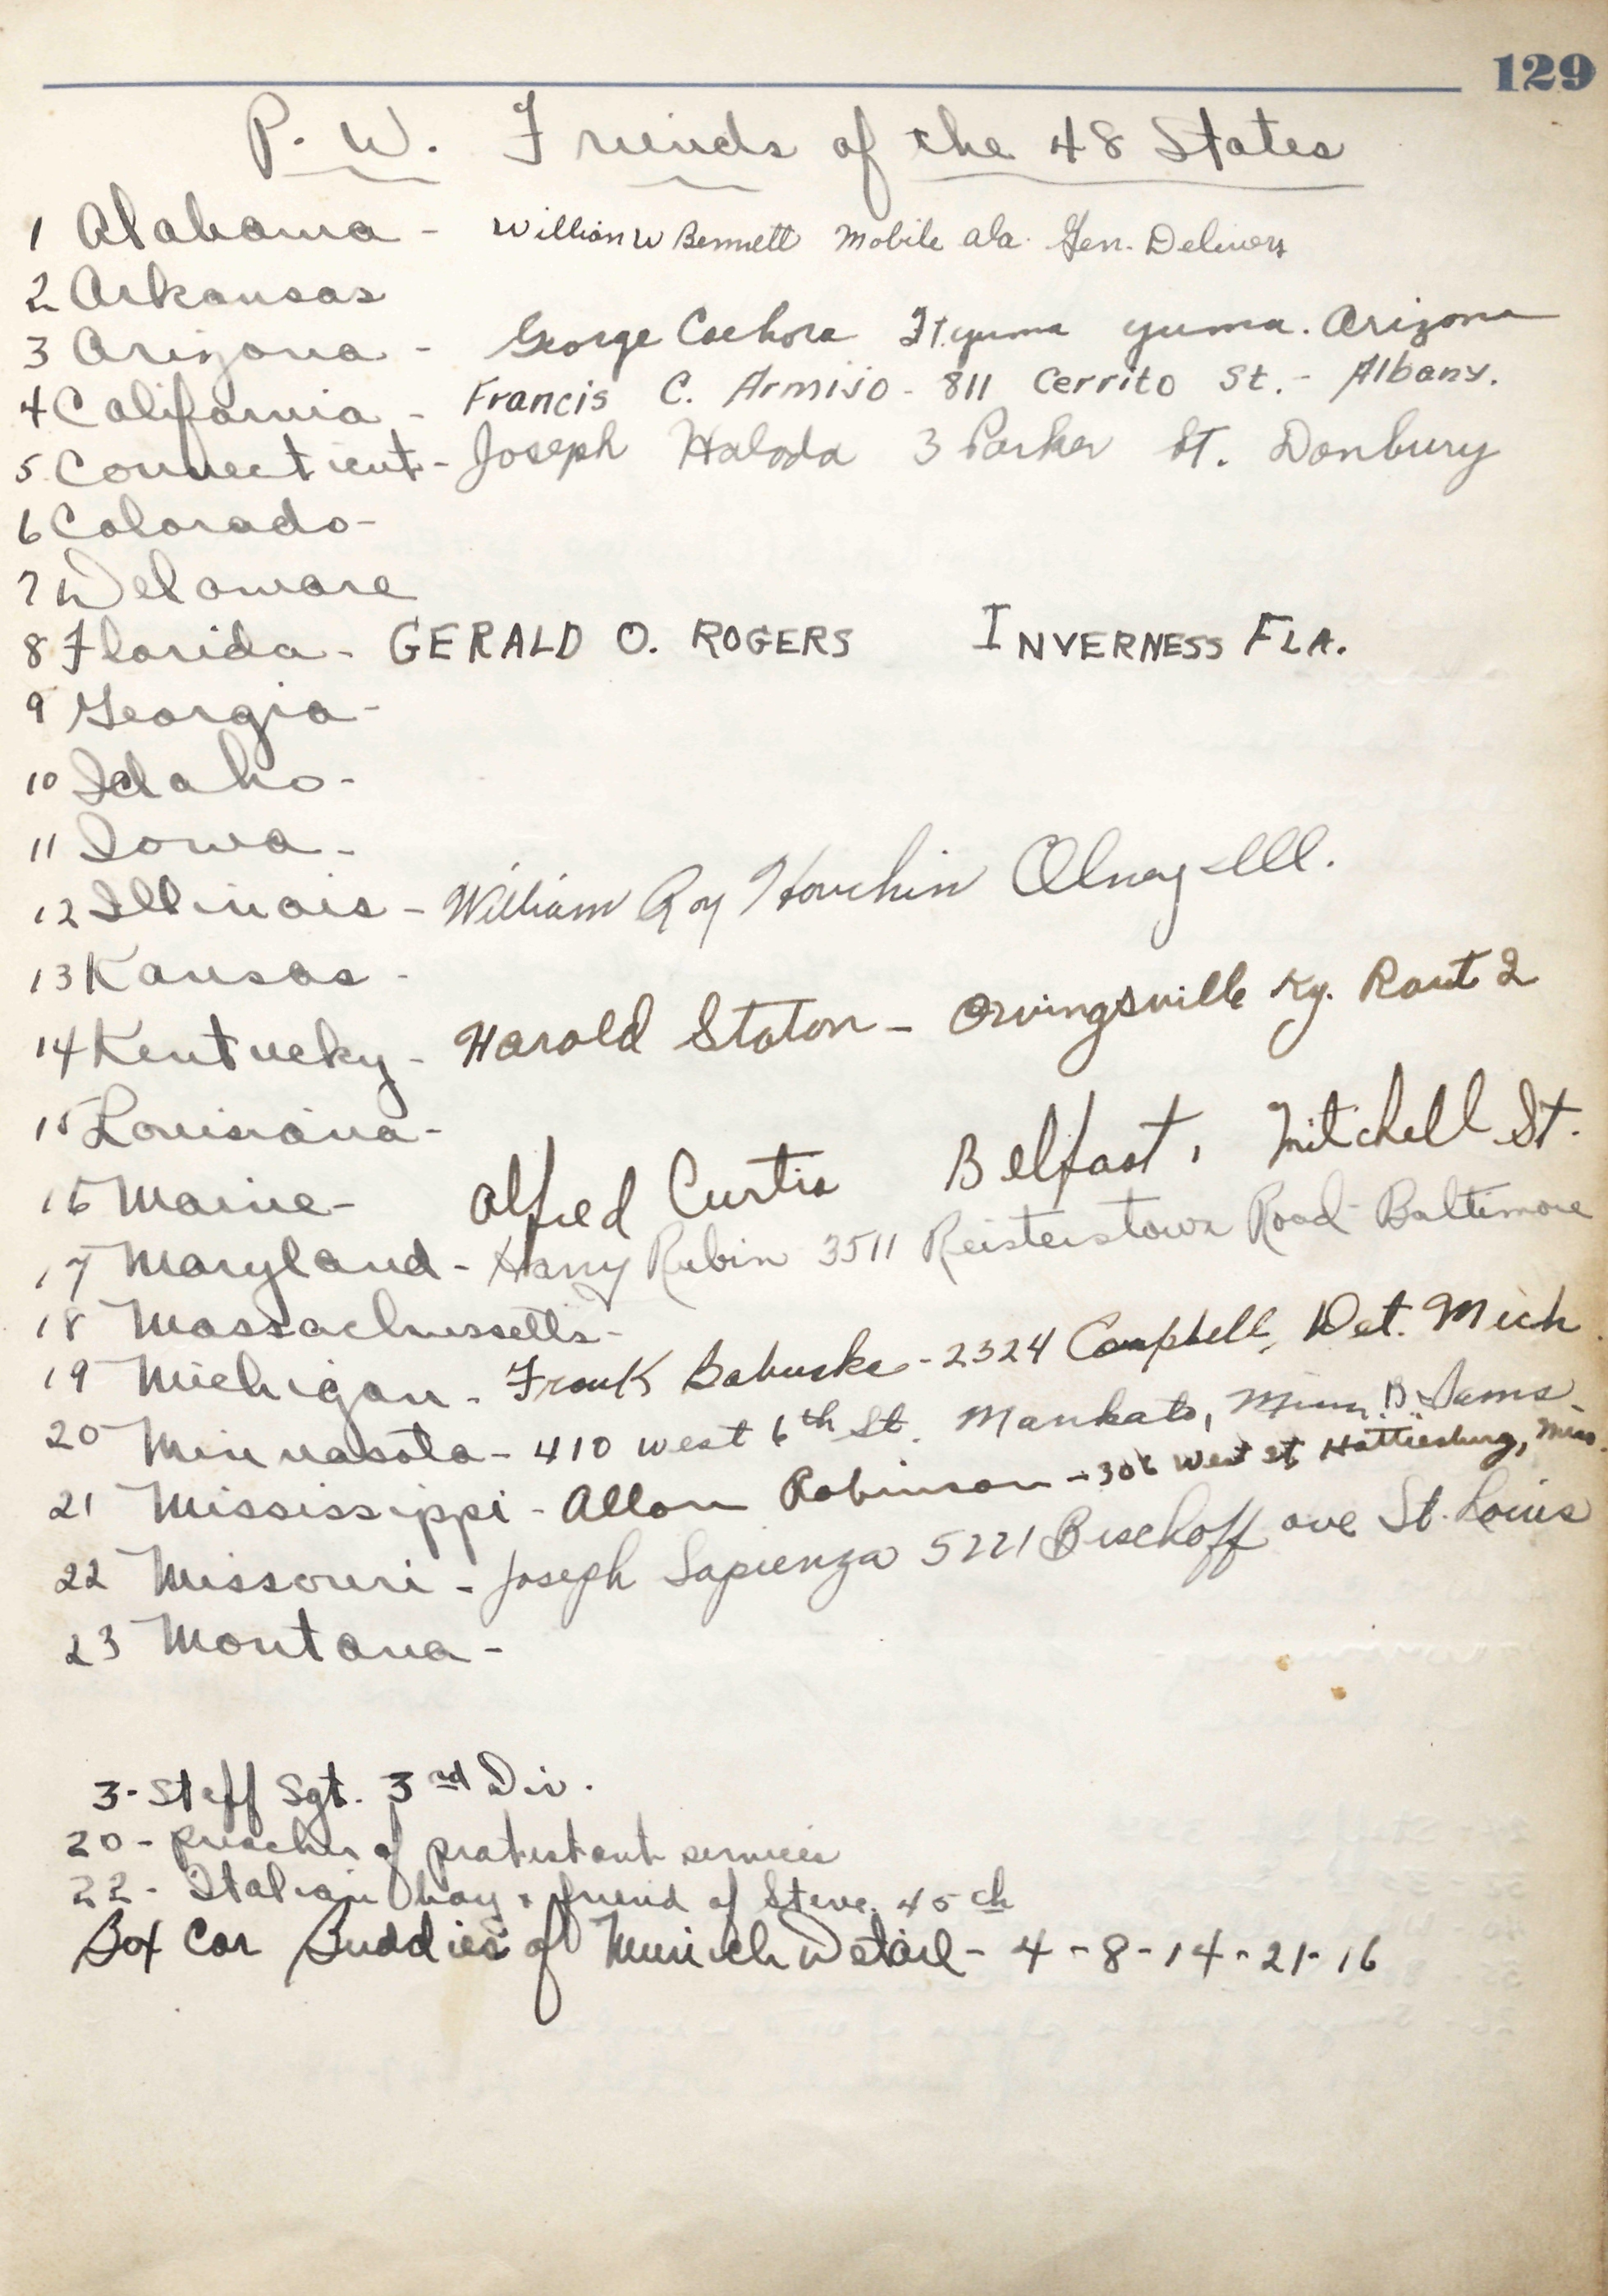 129
P. W. Friends of the 48 States
1 Alabama - William W Bennett Mobile ala. Gen. Delivery
2 Arkansas
3 Arizona - George Cachora Ft. yuma yuma. Arizona
4 California - Francis C. Armijo - 811 Cerrito St. - Albany.
5 Connecticut - Joseph Haloda 3 Parker St. Danbury
6 Colorado -
7 Delaware
8 Florida - GERALD O. ROGERS INVERNESS FLA.
9 Georgia -
10 Idaho -
11 Iowa -
12 Illinois - William Roy Houchin Olney Ill.
13 Kansas -
14 Kentucky - Harold Staton - Owingsville Ky. Rout 2
15 Louisiana -
16 Maine - Alfred Curtis Belfast, Mitchell St.
17 Maryland - Harry Rubin 3511 Reisterstown Road - Baltimore
18 Massachussetts -
19 Michigan - Frank Babuska - 2324 Campbell, Det. Mich.
20 Minnasota - 410 west 6th St. Mankato, Minn. B
21 Mississippi - Allan Robinson - 306 West St Hattiesburg, Miss.
22 Missouri - Joseph Sapienza 5221 Bischoff ave St. Louis
23 Montana -
3 - Staff Sgt. 3rd Div.
20 - preacher of protestant services
22 - Italian boy & friend of Steve. 45th
Box Car Buddies of Munich Detail - 4 - 8 - 14 - 21 - 16